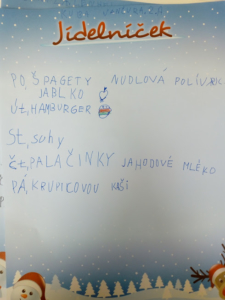 Jídelníček
PO, ŠPAGETY NUDLOVÁ POLÍVKA
JABLKO
ÚT, HAMBURGER
St, sohy
ČT, PALAČINKY JAHODOVÉ MLÉKO
PÁ, KRUPICOVOU KAŠI